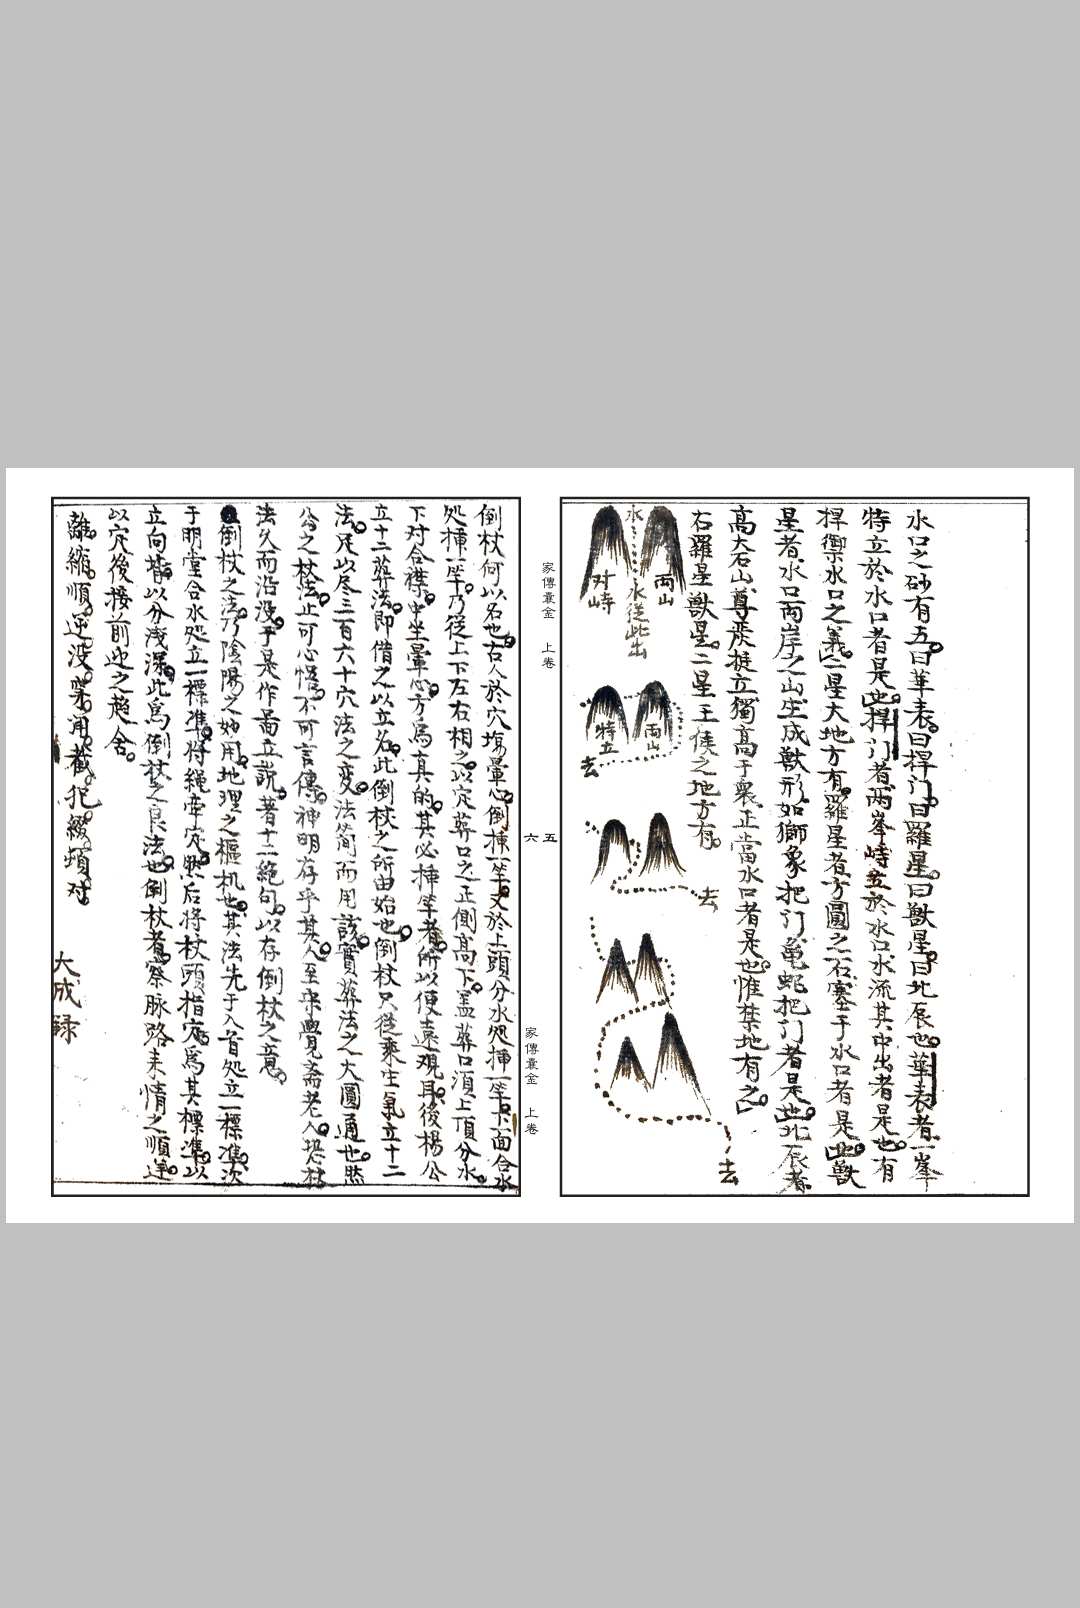 水口之砂有五曰華表曰捍门曰羅星曰獸星曰北辰也華表者一峯
特立於水口者是也捍门者両峯峙立於水口水流其中出者是也有
捍禦水口之義二星大地方有羅星者方圓之石塞于水口者是也獸
星者水口両岸之山生成獸形如獅象把门龜蛇把门者是也北辰者
高大石山尊嚴挺立獨高于衆正當水口者是也惟禁地有之
右羅星獸星二星王侯之地方有
両山
水
水從此出
对峙
両山
特立
去
去
去
家傳囊金 上卷
五
六
家傳囊金 上卷
倒杖何以名也古人於穴塲暈心倒揷一竿又於上頭分水処揷一竿下面合水
処揷一竿乃從上下左右相之以定葬口之正側高下盖葬口湏上頂分水
下对合襟中坐暈心方爲真的其必揷竿者所以便遠观耳後楊公
立十二葬法即借之以立名此倒杖之所由始也倒杖只從乘生氣立十二
法足以尽三百六十穴法之変法簡而用該實葬法之大圓通也然
公之杖法止可心悟不可言傳神明存乎其人至來覺斋老人恐杖
法久而沿没于是作畐立説著十二絶句以存倒杖之意
倒杖之法乃陰陽之妙用地理之樞机也其法先于入首処立一標准次
于明堂合水処立一標准将繩牽定然后将杖頭指穴爲其標準以
立向皆以分浅深此爲倒杖之良法也倒杖者察脉路来情之順逆
以定後接前迎之趍舍
離縮順逆没穿闹截犯綴頂对
大成録